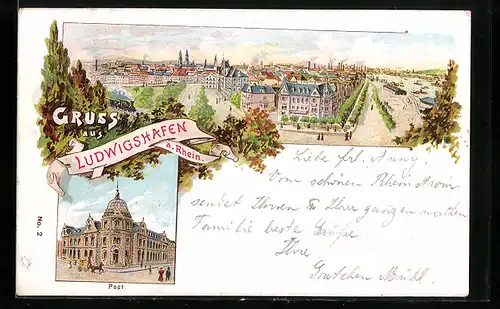 GRUSS
aus
LUDWIGSHAFEN
a. Rhein.
Liebe Frl. Anny.
Vom schönen Rhein
sendet Ihnen & Ihrer ganzen werthen
Familie beste Grüße
Ihre
Gretchen
No. 2
Post.